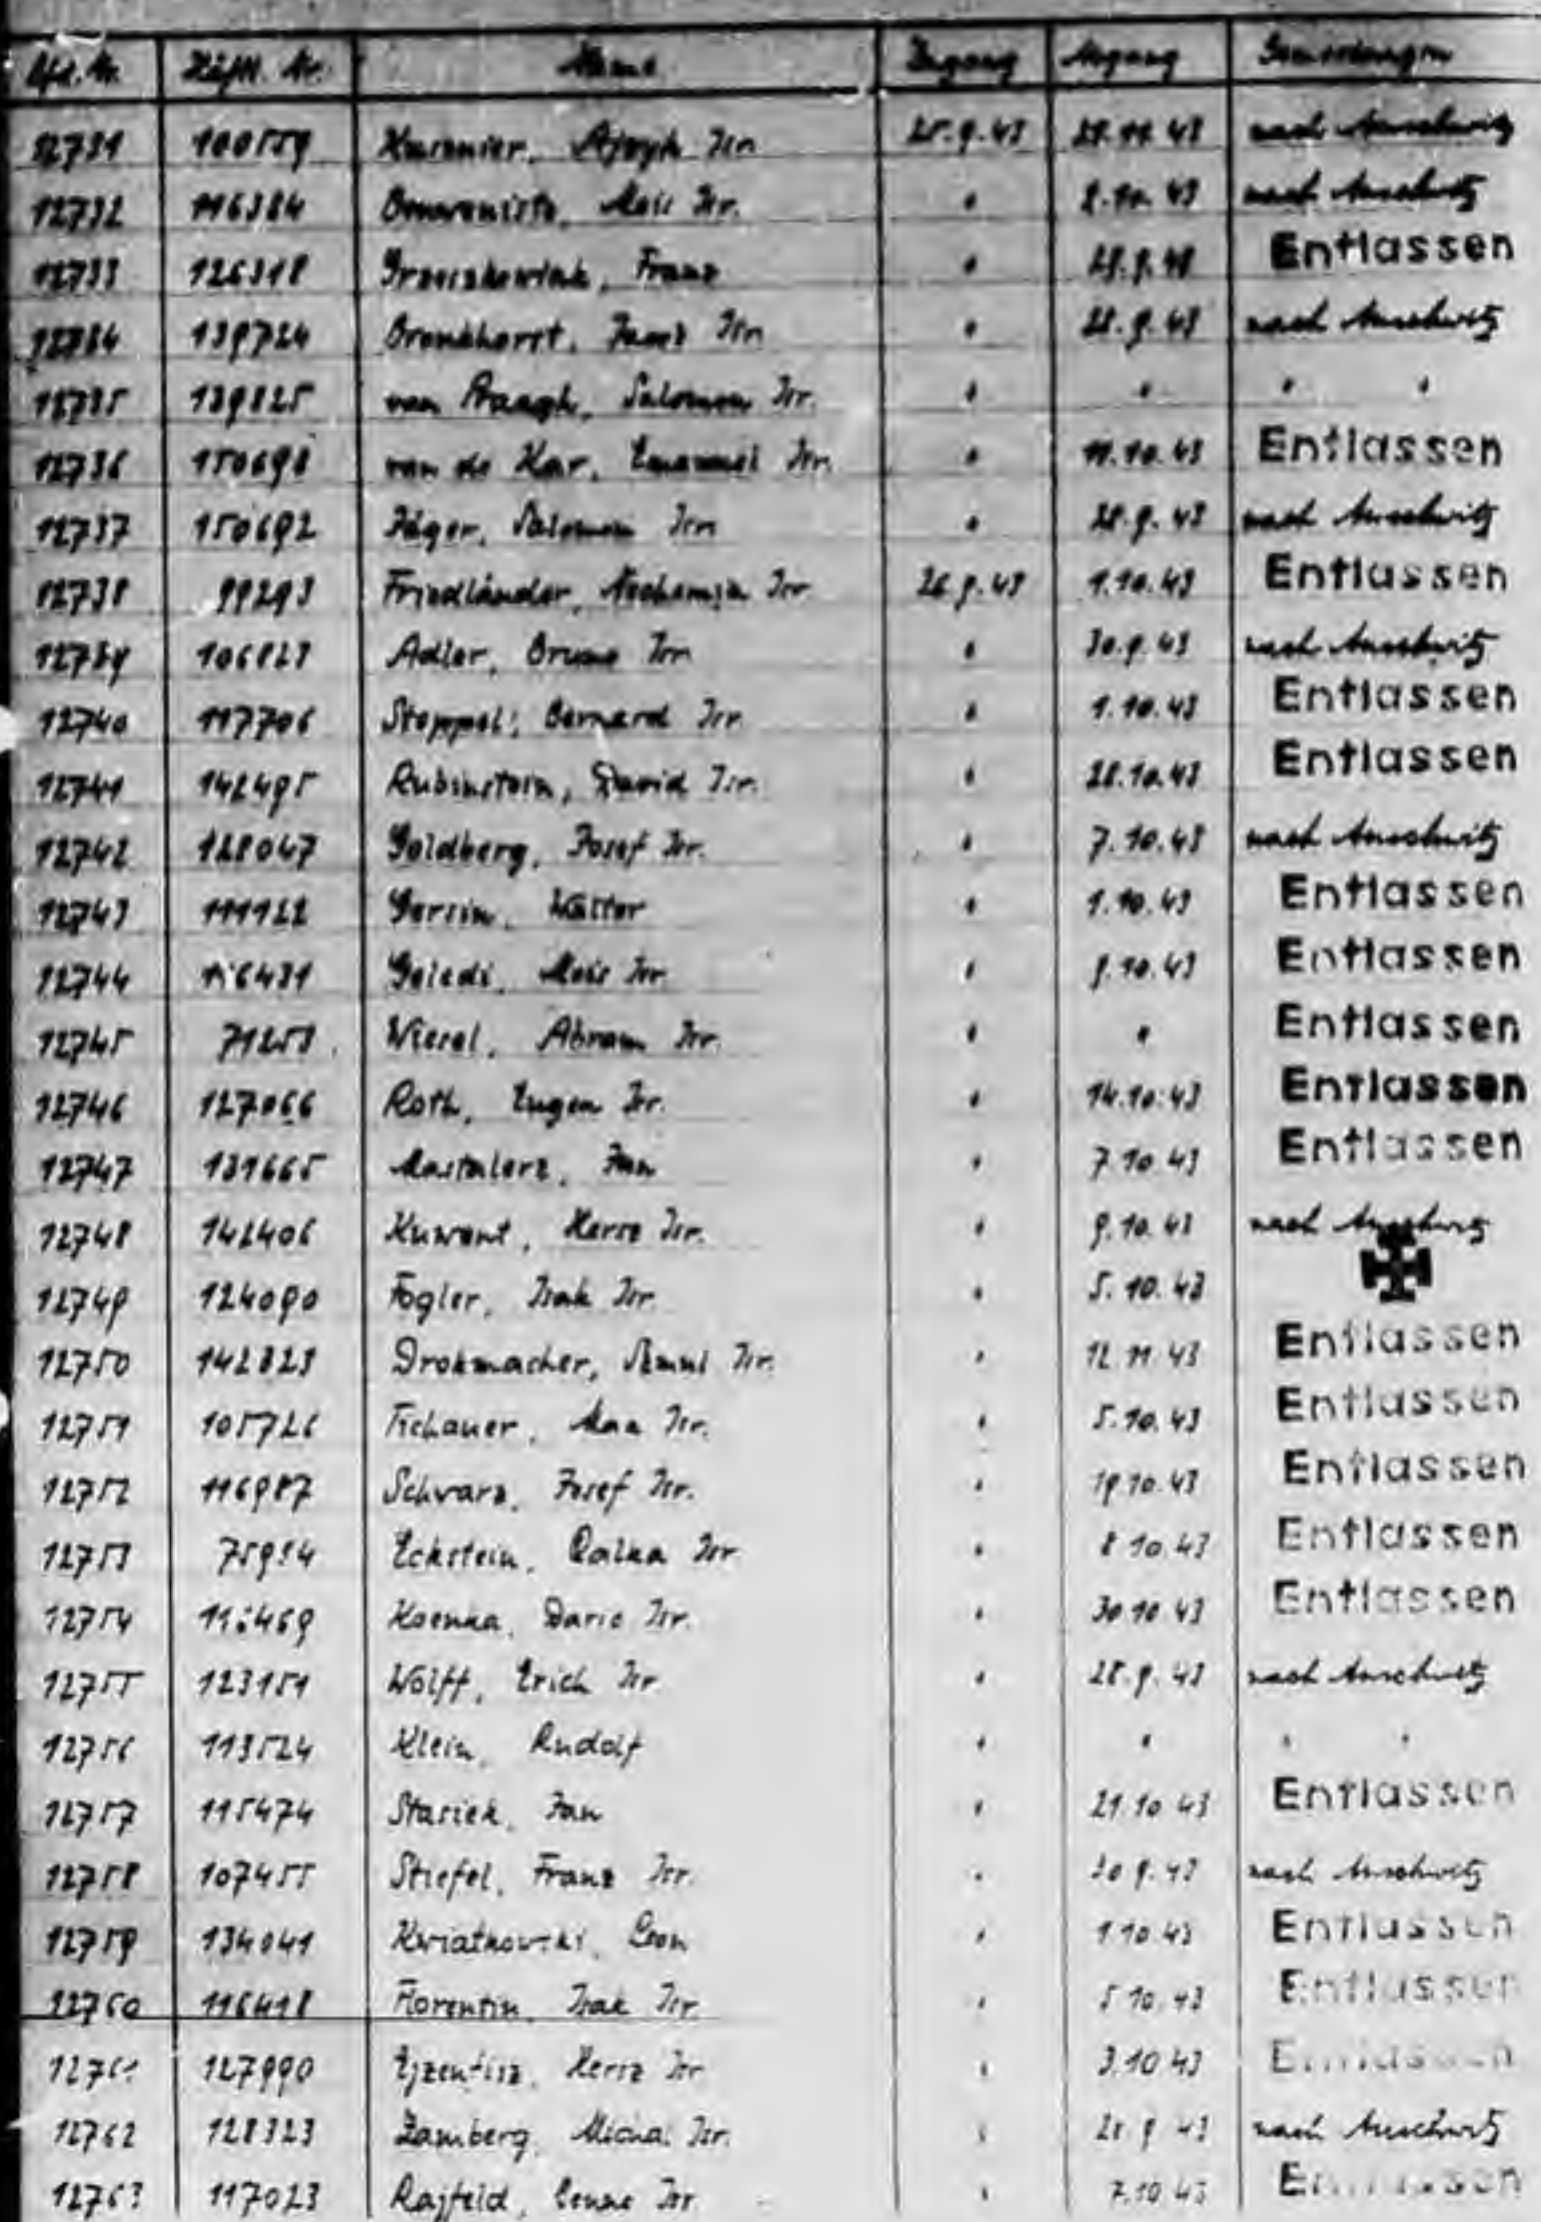 Lfd. Nr. Häftl. Nr. Name Zugang Abgang Bemerkungen
12731 100559 Isr. 25.9.43 nach Auschwitz
12732 116384 Isr. " nach Auschwitz
12733 126318 Franz " Entlassen
12734 139724 Bronkhorst, Isr. " 28.9.43 nach Auschwitz
12735 139825 van Praagh, Salomon Isr. " " " "
12736 150698 van de Kar, Emanuel Isr. " 11.10.43 Entlassen
12737 150692 Jäger, Salomon Isr. " 28.9.43 nach Auschwitz
12738 99293 Friedländer, Nechemja Isr. 26.9.43 1.10.43 Entlassen
12739 106823 Adler, Bruno Isr. " 30.9.43 nach Auschwitz
12740 117706 Stoppel, Bernard Isr. " 1.10.43 Entlassen
12741 142495 Rubinstein, David Isr. " 28.10.43 Entlassen
12742 128047 Goldberg, Josef Isr. " 7.10.43 nach Auschwitz
12743 111122 Gersin, Walter " 1.10.43 Entlassen
12744 116431 Isr. " 9.10.43 Entlassen
12745 71253 Abram Isr. " " Entlassen
12746 127066 Roth, Eugen Isr. " 14.10.43 Entlassen
12747 131665 Mastalerz, Jan " 7.10.43 Entlassen
12748 142406 Kuwent, Hersz Isr. " 9.10.43 nach Auschwitz
12749 124090 Fogler, Isak Isr. " 5.10.43
12750 142823 Isr. " 12.11.43 Entlassen
12751 105726 Tichauer, Max Isr. " 5.10.43 Entlassen
12752 116987 Schwarz, Josef Isr. " 19.10.43 Entlassen
12753 Eckstein, Isr. " 8.10.43 Entlassen
12754 Isr. " 30.10.43 Entlassen
12755 123151 Wolff, Erich Isr. " 28.9.43 nach Auschwitz
12756 113524 Klein, Rudolf " " " "
12757 115474 Jan " 21.10.43 Entlassen
12758 107455 Stiefel, Franz Isr. " 30.9.43 nach Auschwitz
12759 134041 Kwiatkowski, Leon " 1.10.43 Entlassen
12760 116418 Florentin, Isak Isr. " 5.10.43 Entlassen
12761 127990 Hersz Isr. " 3.10.43 Entlassen
12762 128323 Zamberg, Isr. " 28.9.43 nach Auschwitz
12763 117023 Rajfeld, Isr. " 7.10.43 Entlassen